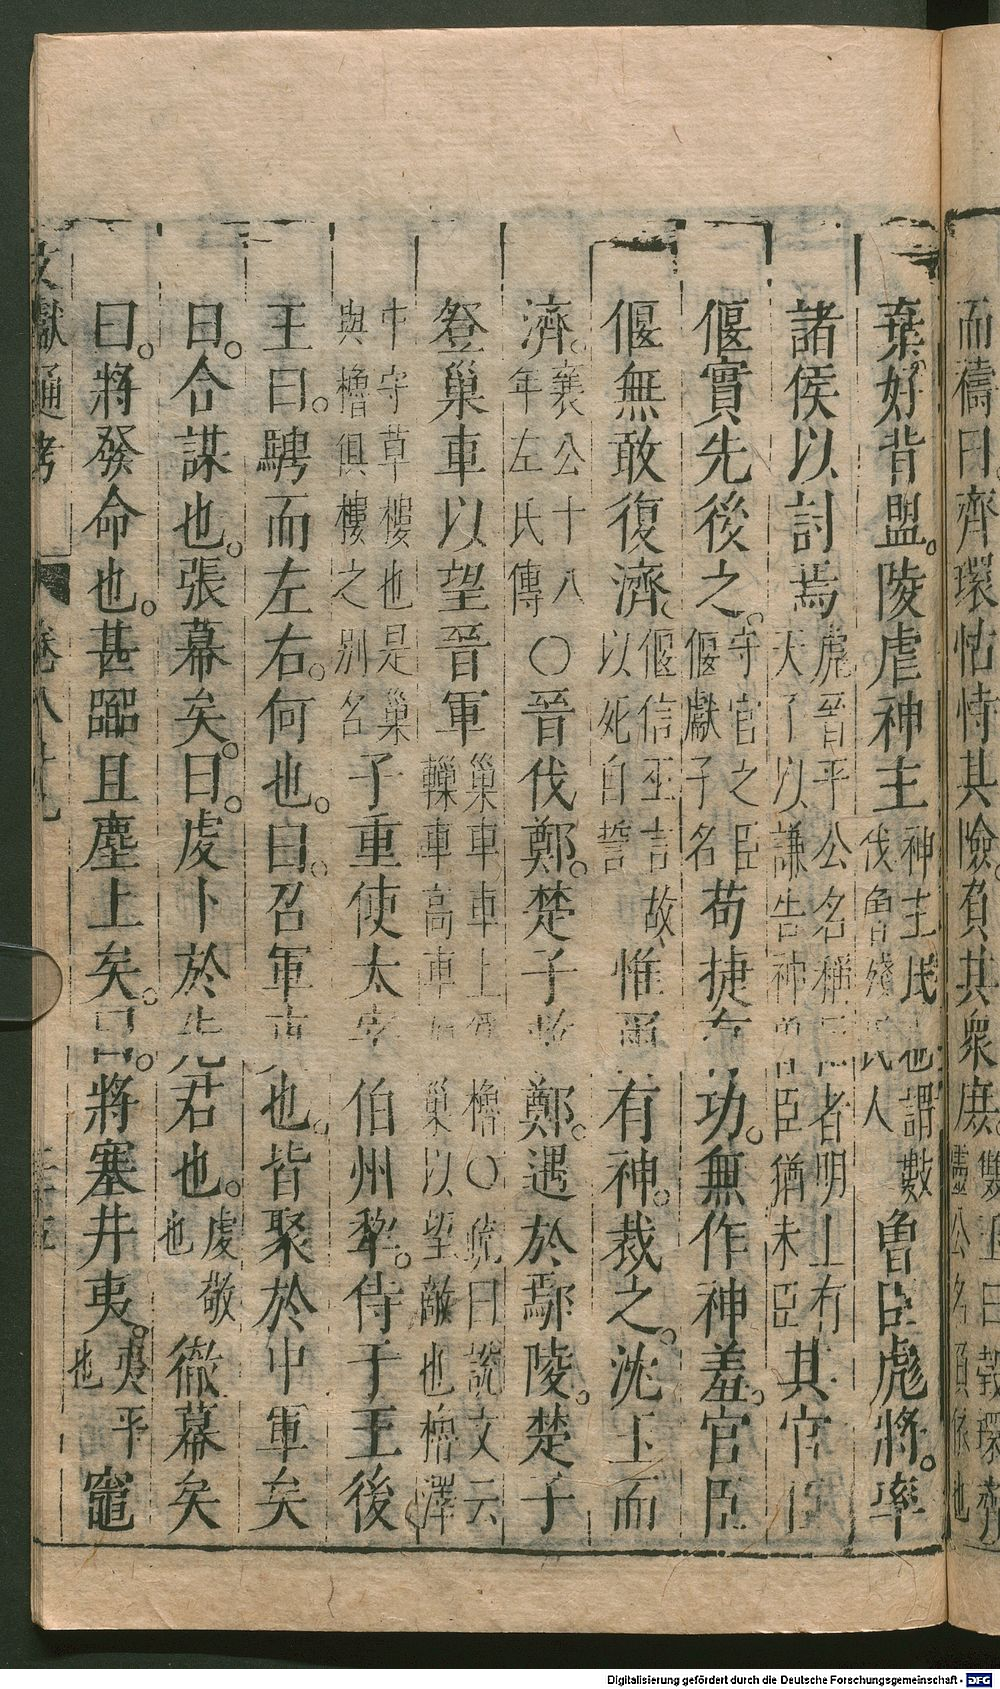 而禱曰齊環怙恃其險負其衆庶
棄好背盟陵虐神主神主民也謂數伐魯殘民人魯臣彪將率
諸侯以討焉彪晉平公名稱臣者明上有天子以謙告神曾臣猶末臣其官臣
偃實先後之守官之臣偃獻子名苟捷有功無作神羞官臣
偃無敢復濟偃信巫言故以死自誓惟爾有神裁之沈玉而
濟襄公十八年左氏傳○晉伐鄭楚子救鄭遇於鄢陵楚子
登巢車以望晉軍巢車車上爲櫓○疏曰說文云轈車高車加巢以望敵也櫓澤
中守草樓也是巢與櫓俱樓之別名子重使太宰伯州犂侍于王後
王曰騁而左右何也曰召軍吏也皆聚於中軍矣
曰合謀也張幕矣曰虔卜於先君也虔敬也徹幕矣
曰將發命也甚囂且塵上矣曰將塞井夷夷平也竈
文獻通考 卷八十九
Digitalisierung gefördert durch die Deutsche Forschungsgemeinschaft - DFG